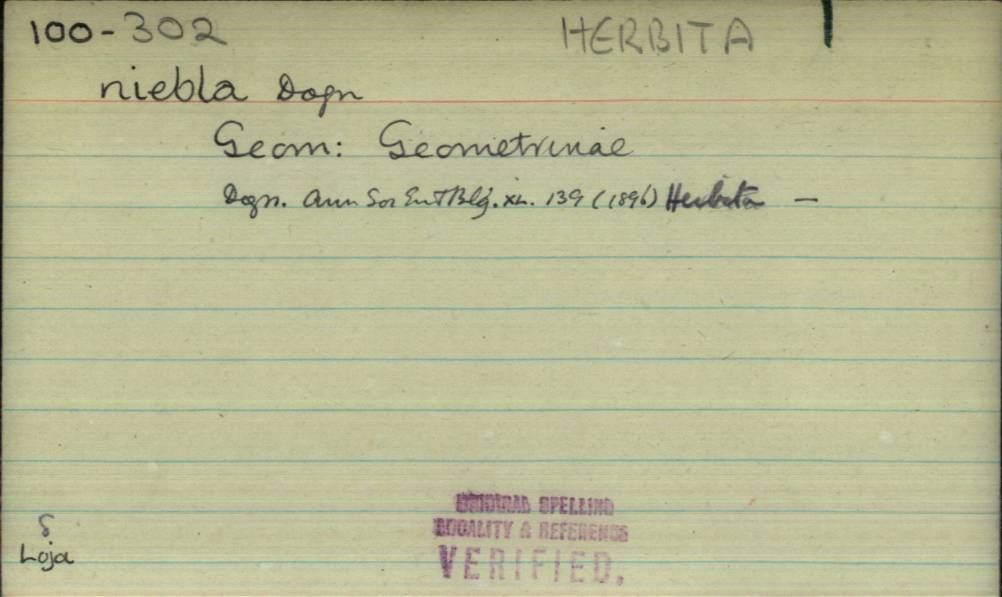 100-302 HERBITA
niebla Dogn
Geom: Geometrinae
Dogn. Ann Soc Ent Blg. XL. 139 (1896) Herbita —
ORIGINAL SPELLING
LOCALITY & REFERENCE
VERIFIED.
Loja